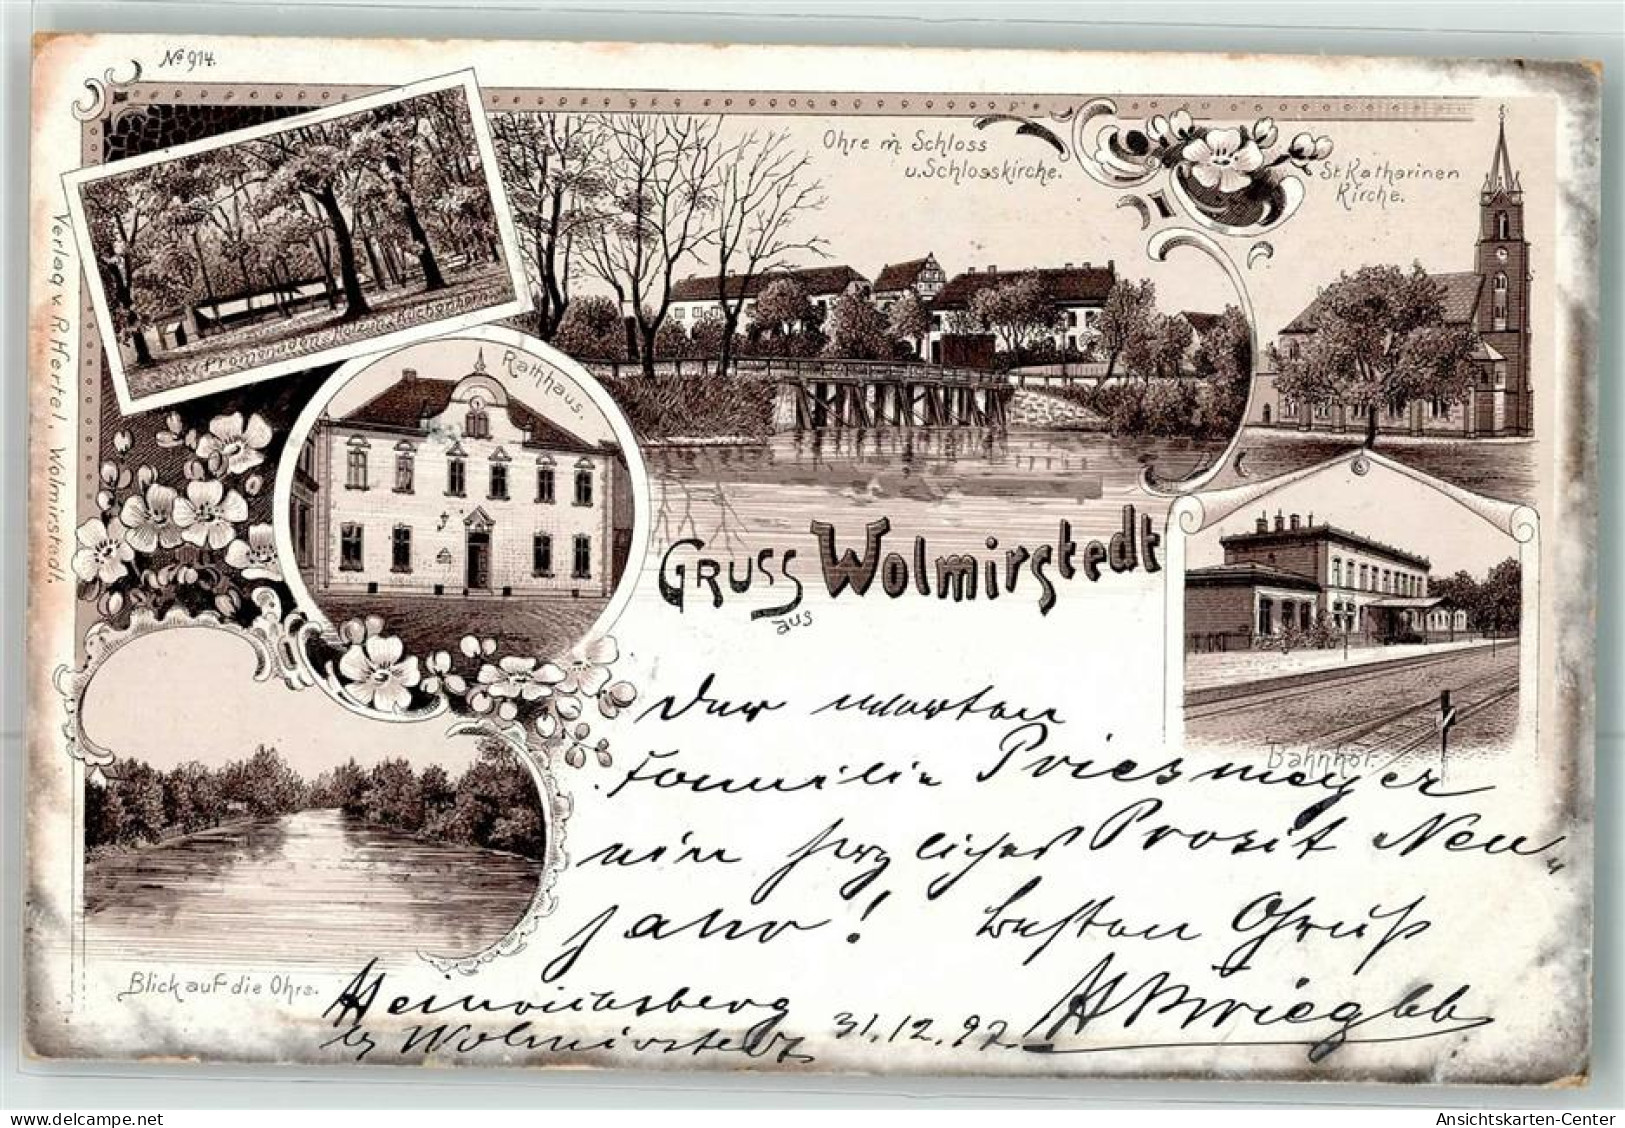 No 914.
Ohre m. Schloss
u. Schlosskirche.
St. Katharinen
Kirche.
Rathhaus.
Verlag v. R. Hertel, Wolmirstedt.
Gruss
aus
Wolmirstedt
Bahnhof.
Blick auf die Ohre.
Der werten
Familie Priesmeyer
ein herzliches Prosit Neu-
jahr! Besten Gruß
Heinrichsberg
b/ Wolmirstedt 31.12.97.
Ansichtskarten-Center